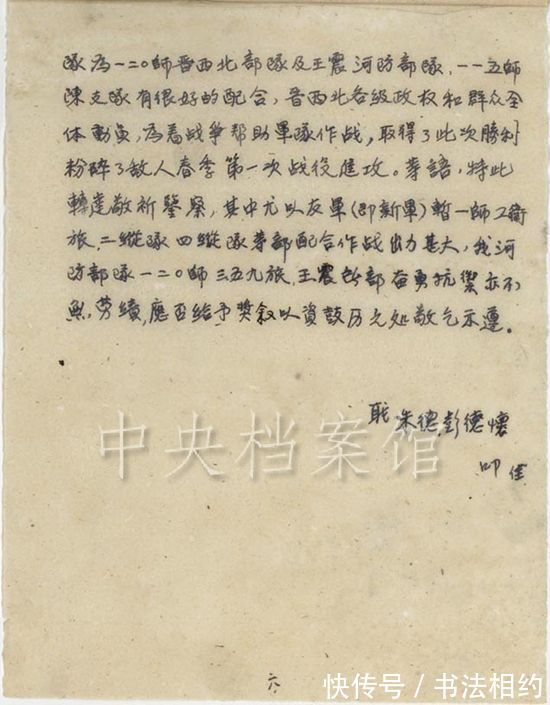 隊為一二〇師晋西北部隊及王震河防部隊，一一五師
陳支隊有很好的配合，晋西北各級政权和群众全
体動員，為着战争帮助軍隊作战，取得了此次勝利
粉碎了敌人春季第一次战役進攻。等語，特此
轉達敬祈鑒察，其中尤以友軍（即新軍）暫一師工衛
旅，二縱隊四縱隊等部配合作战出力甚大，我河
防部隊一二〇師三五九旅，王震所部奋勇抗禦亦不
無勞績，應否给予獎叙以資鼓历之处敬乞示遵。
職 朱德 彭德懷
叩 佳
中央档案馆
六
快传号 / 书法相约